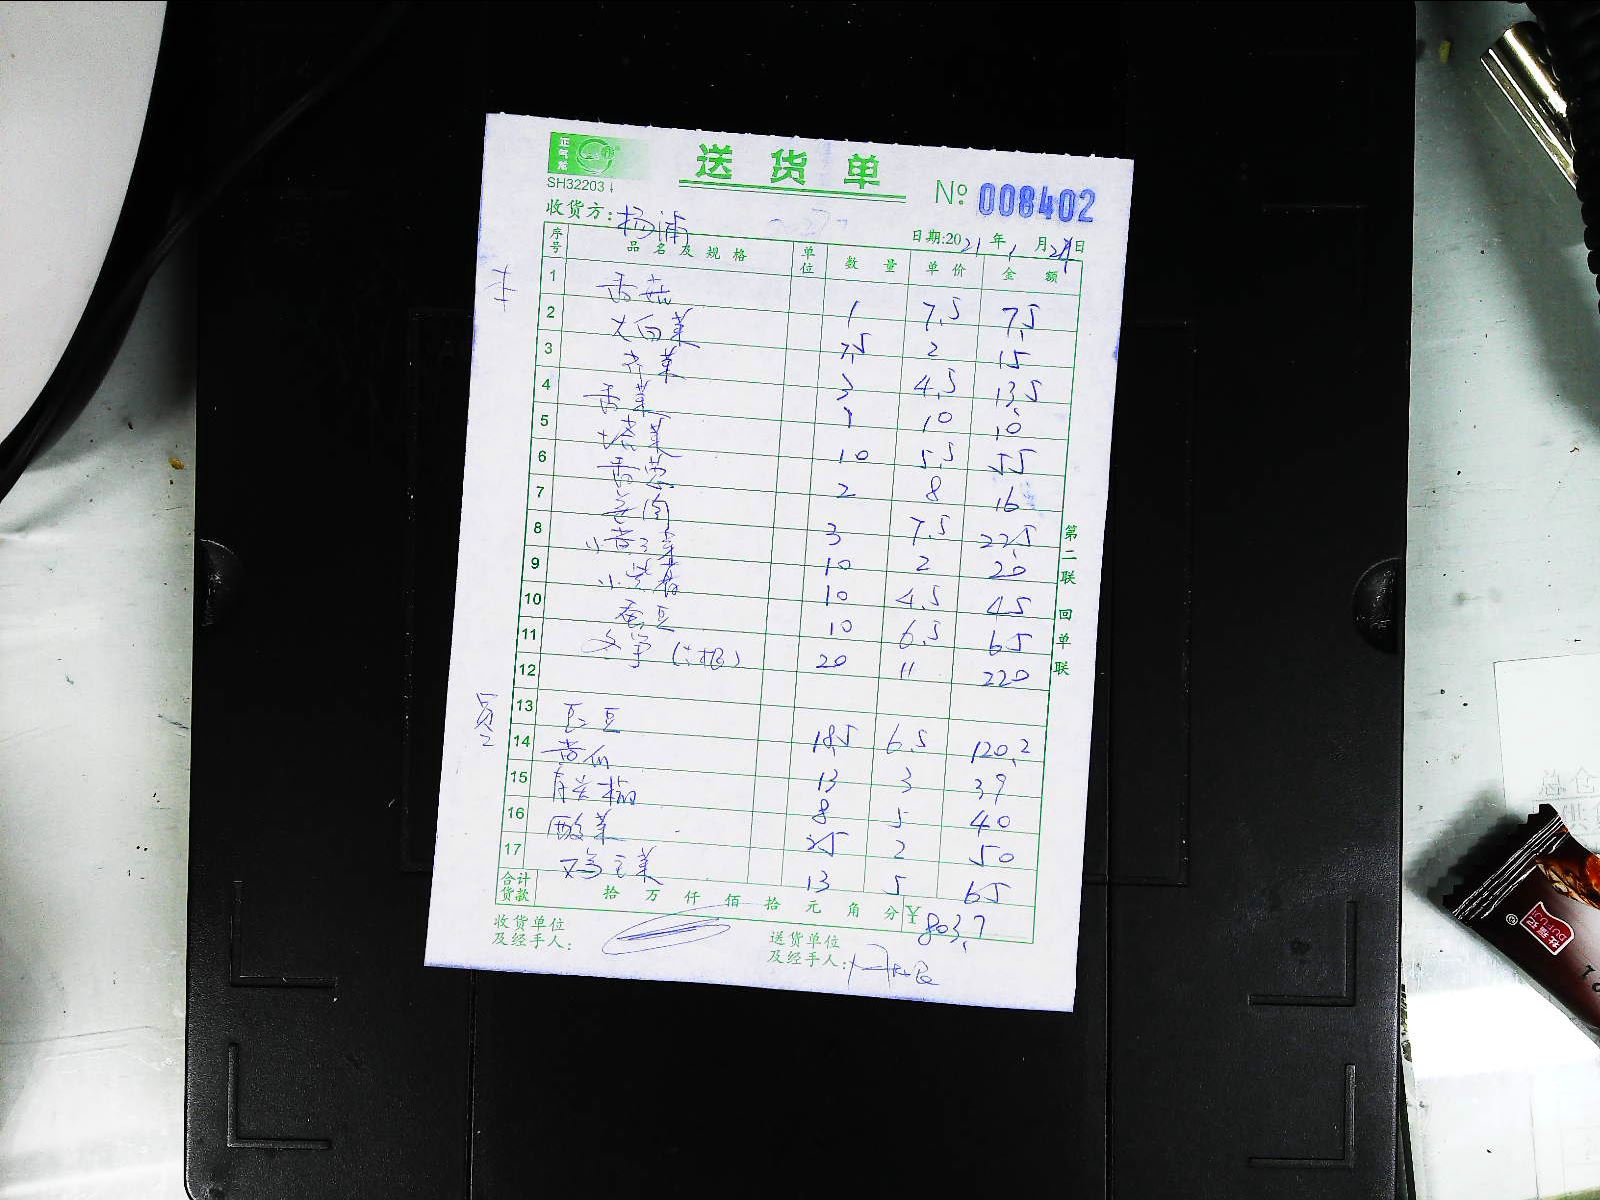 正气
送货单
SH32203
№ 008402
收货方: 杨浦
日期:2021年1月
序号 品名及规格 单位 数量 单价 金额
1 香菇 1 7.5 7.5
2 大白菜 7.5 2 15
3 芹菜 3 4.5 13.5
4 香菜 1 10 10
5 塔菜 10 5.5 55
6 香葱 2 8 16
7 姜肉 3 7.5 22.5
8 10 2 20
9 10 4.5 45
10 蚕豆 10 6.5 65
11 20 11 220
12
13 豆 18.5 6.5 120.2
14 13 3 39
15 8 5 40
16 酸菜 25 2 50
17 鸡毛菜 13 5 65
合计货款 拾 万 仟 佰 拾 元 角 分 ¥ 803.7
收货单位及经手人:
送货单位及经手人:
第二联 回单联